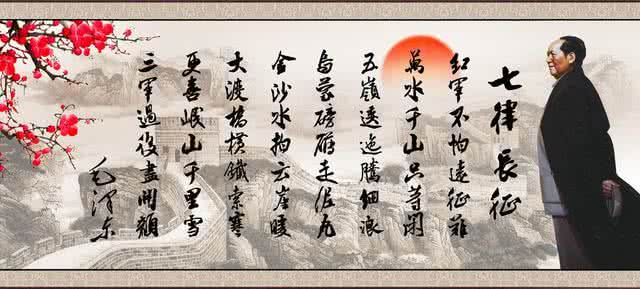 七律長征
紅軍不怕遠征難
萬水千山只等閑
五嶺逶迤騰細浪
烏蒙磅礴走泥丸
金沙水拍雲崖暖
大渡橋橫鐵索寒
更喜岷山千里雪
三軍過後盡開顏
毛澤東